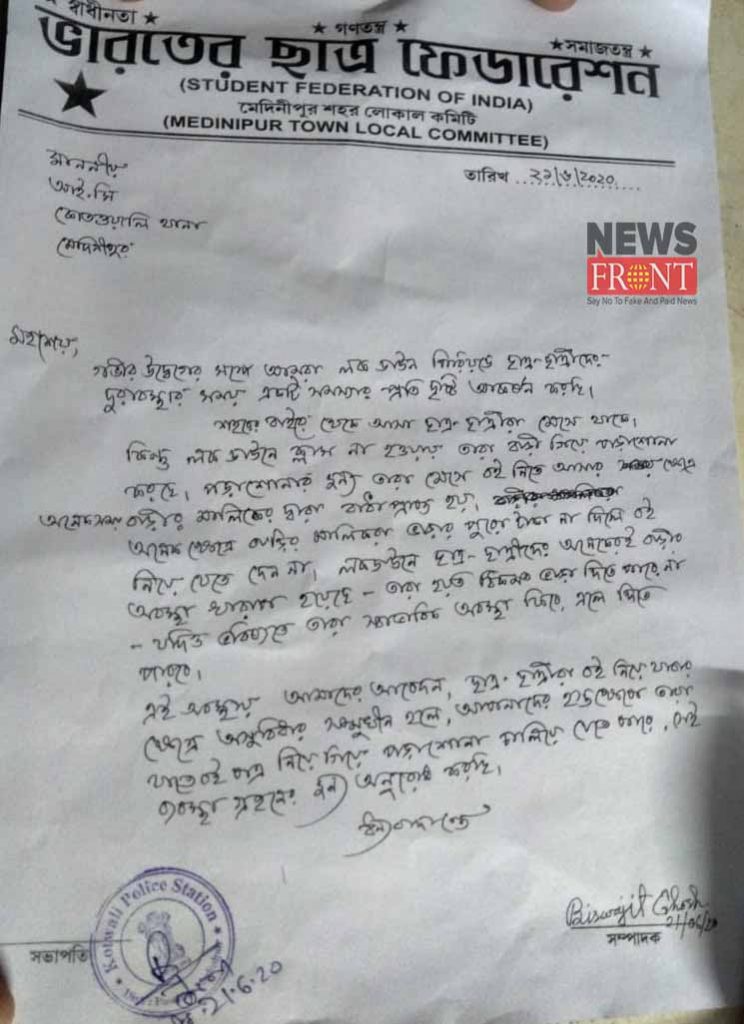 ★ স্বাধীনতা ★ ★ গণতন্ত্র ★ ★সমাজতন্ত্র ★
ভারতের ছাত্র ফেডারেশন
(STUDENT FEDERATION OF INDIA)
মেদিনীপুর শহর লোকাল কমিটি
(MEDINIPUR TOWN LOCAL COMMITTEE)
মাননীয়
তারিখ ...২১/৬/২০২০......
আই.সি
কোতওয়ালি থানা
মেদিনীপুর
NEWS
FRONT
Say No To Fake And Paid News
মহাশয়,
গভীর উদ্বেগের সঙ্গে আমরা লক ডাউন পিরিয়ডে ছাত্র-ছাত্রীদের
দুরাবস্থার সময় একটি সমস্যার প্রতি দৃষ্টি আকর্ষন করছি।
শহরের বাইরে থেকে আসা ছাত্র-ছাত্রীরা মেসে থাকে।
কিন্তু লক ডাউনে ক্লাস না হওয়ায় তারা বাড়ী গিয়ে পড়াশোনা
করছে। পড়াশোনার জন্য তারা মেসে বই নিতে আসার ক্ষেত্রে
অনেকসময় বাড়ীর মালিকের দ্বারা বাধা প্রাপ্ত হয়।
অনেক ক্ষেত্রে বাড়ির মালিকরা ভাড়ার পুরো টাকা না দিলে বই
নিয়ে যেতে দেন না। লকডাউনে ছাত্র-ছাত্রীদের অনেকেরই বাড়ীর
অবস্থা খারাপ হয়েছে - তারা হয়ত ঠিকমত ভাড়া দিতে পারে না
- যদিও ভবিষ্যতে তারা স্বাভাবিক অবস্থা ফিরে এলে দিতে
পারবে।
এই অবস্থায় আমাদের আবেদন, ছাত্র-ছাত্রীরা বই নিয়ে যাবার
ক্ষেত্রে অসুবিধার সম্মুখীন হলে, আপনাদের হস্তক্ষেপে তারা
যাতে বই পত্র নিয়ে গিয়ে পড়াশোনা চালিয়ে যেতে পারে, সেই
ব্যবস্থা গ্রহনের জন্য অনুরোধ করছি।
ধন্যবাদান্তে
Kotwali Police Station
21.6.20
সভাপতি
Biswajit Ghosh
21/06/20
সম্পাদক